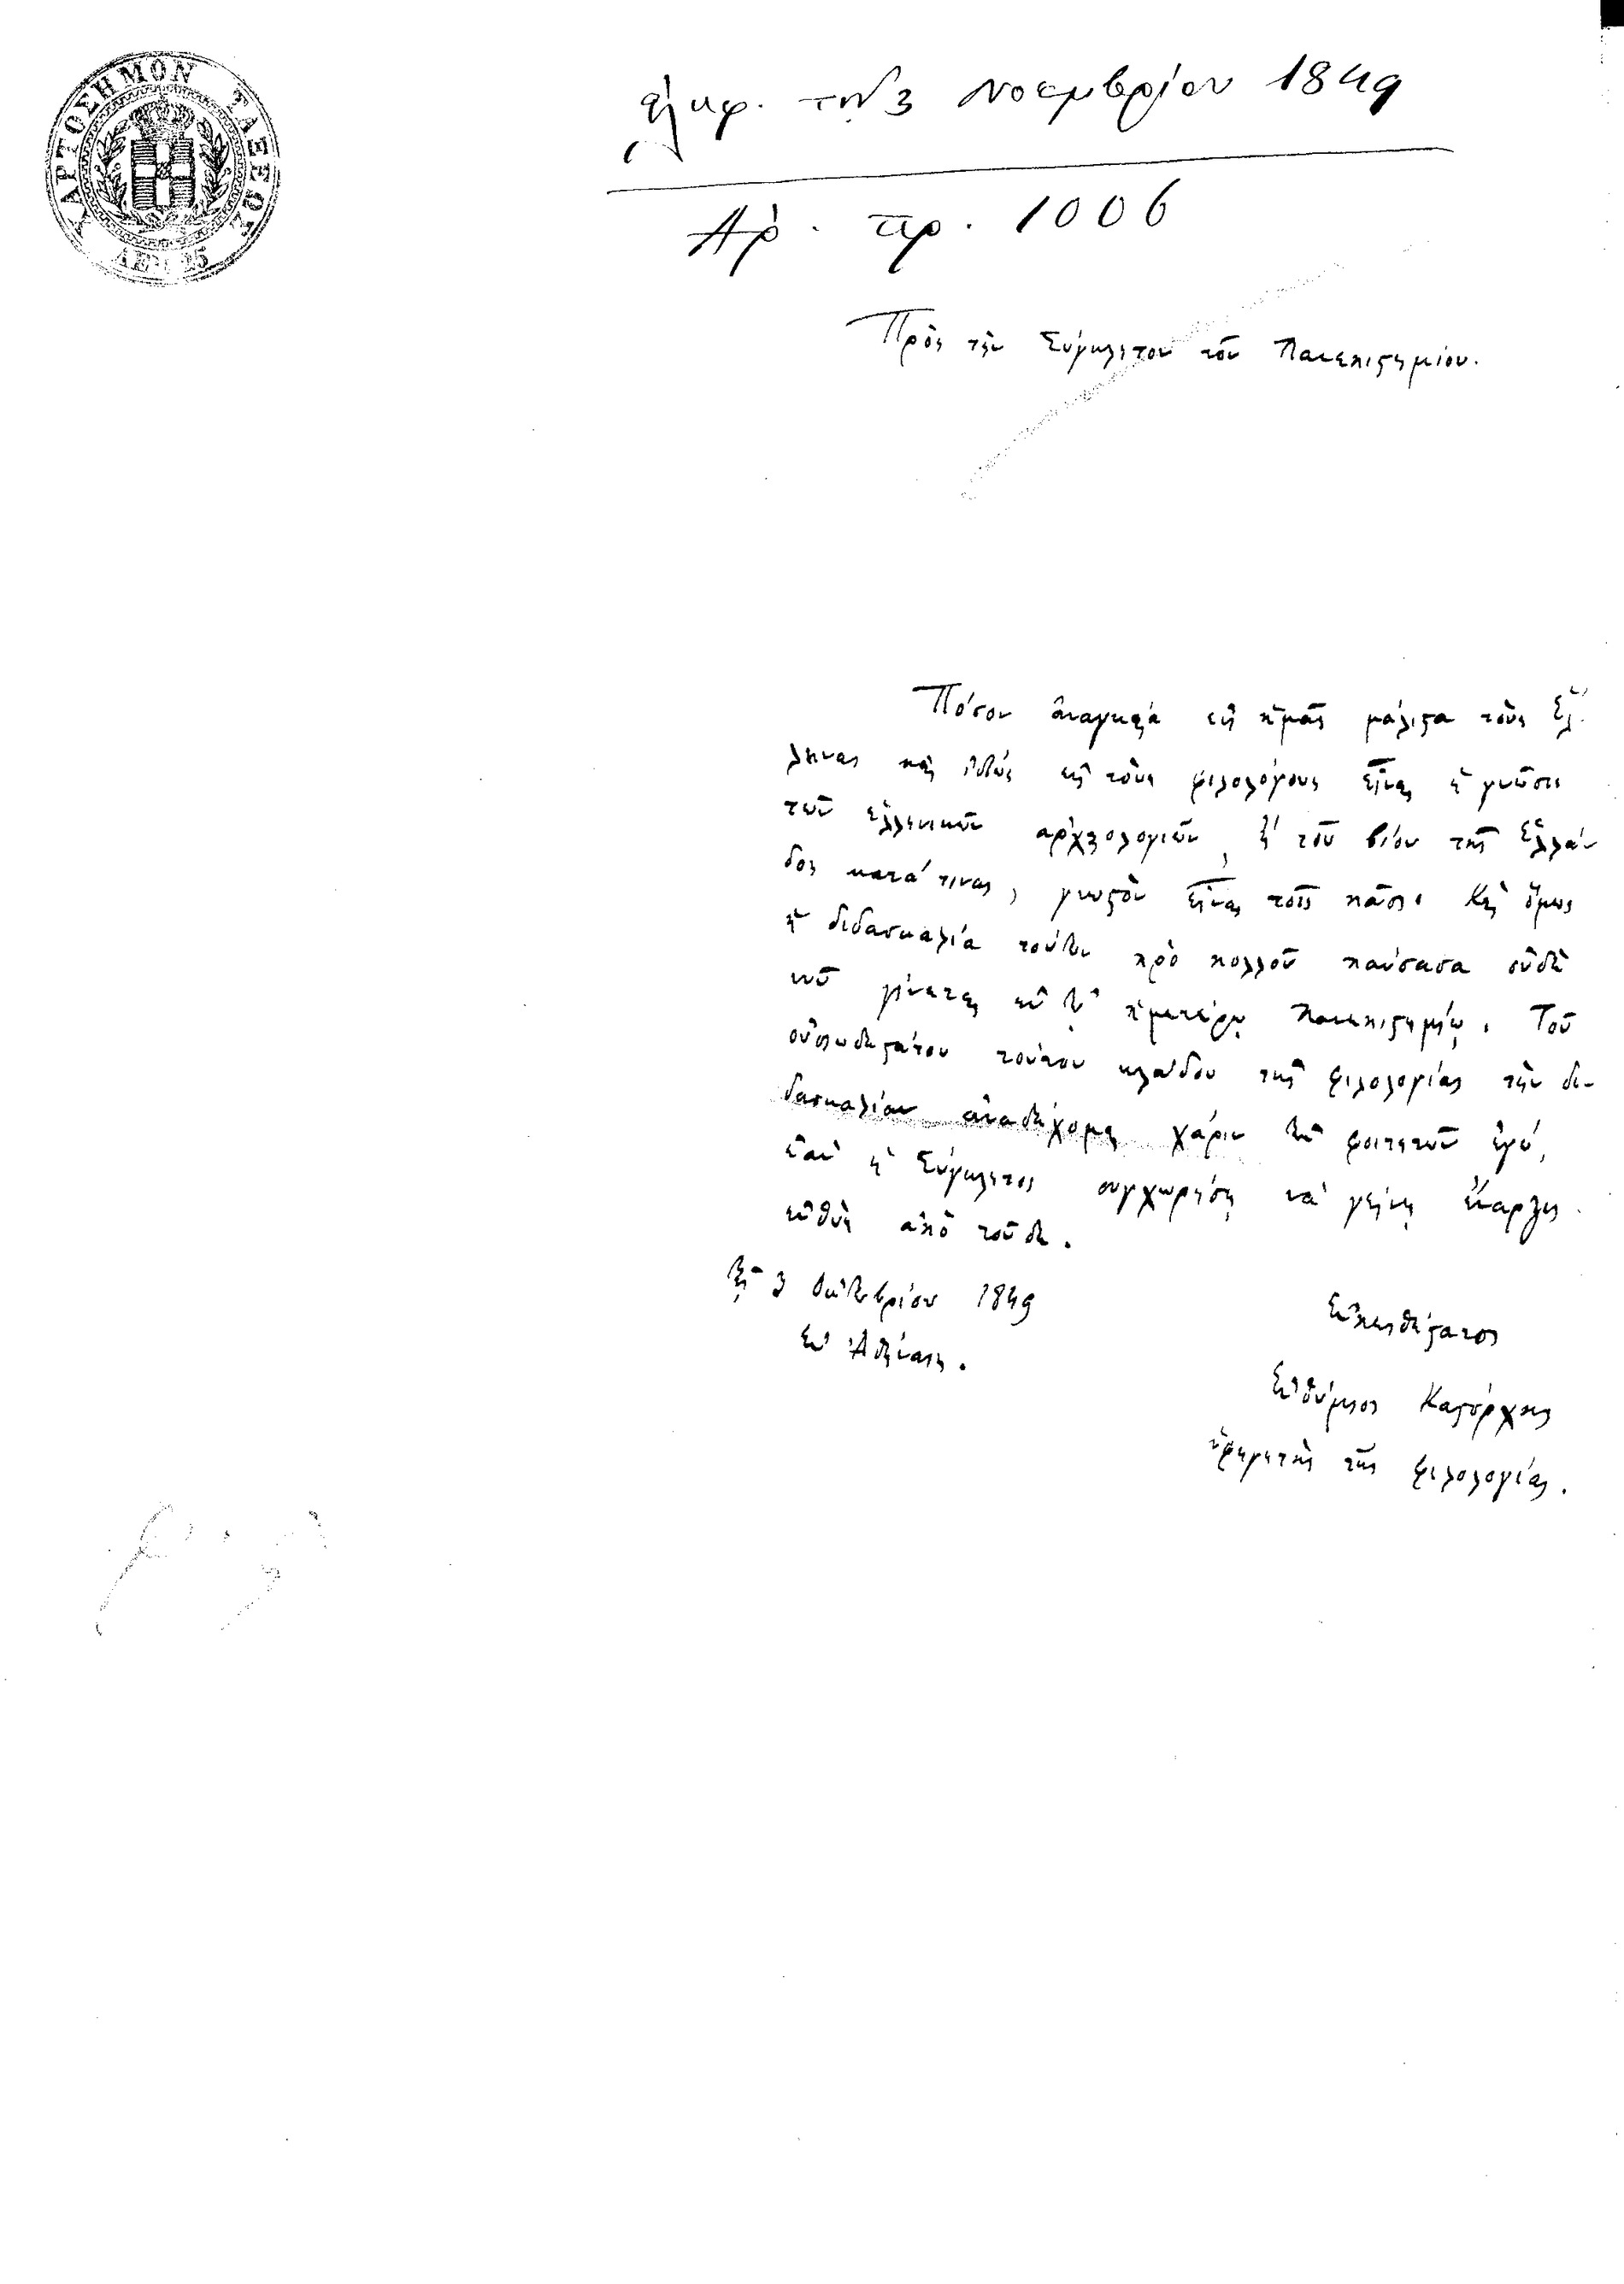 ΧΑΡΤΟΣΗΜΟΝ ΤΑΞΕΩΣ
ΛΕΠ 25
τὴν 3 Νοεμβρίου 1849
Ἀρ. πρ. 1006
Πρὸς τὴν Σύγκλητον τοῦ Πανεπιστημίου.
Πόσον ἀναγκαία εἰς ἡμᾶς μάλιστα τοὺς Ἕλ-
ληνας καὶ ἰδίως εἰς τοὺς φιλολόγους εἶναι ἡ γνῶσις
τῶν ἑλληνικῶν ἀρχαιολογιῶν, ἢ τοῦ βίου τῆς Ἑλλά-
δος κατά τινας, γνωστὸν εἶναι τοῖς πᾶσι. Καὶ ὅμως
ἡ διδασκαλία τούτων πρὸ πολλοῦ παύσασα οὐδὲ
νῦν γίνεται ἐν τῷ ἡμετέρῳ Πανεπιστημίῳ. Τοῦ
οὐσιωδεστάτου τούτου κλάδου τῆς φιλολογίας τὴν δι-
δασκαλίαν ἀναδέχομαι χάριν τῶν φοιτητῶν ἐγώ,
ἐὰν ἡ Σύγκλητος συγχωρήσῃ νὰ γείνῃ ἔναρξις
εὐθὺς ἀπὸ τοῦδε.
Τῇ 3 Ὀκτωβρίου 1849
Ἐν Ἀθήναις.
Εὐπειθέστατος
Εὐθύμιος Καστόρχης
ὑφηγητὴς τῆς φιλολογίας.